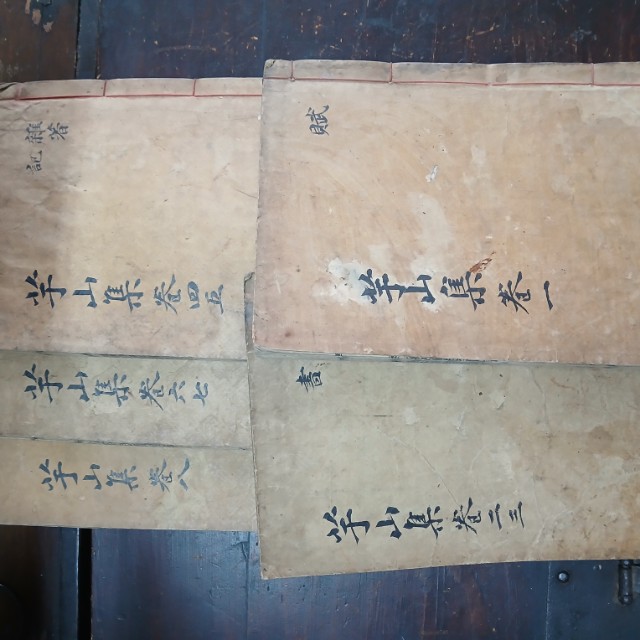 賦
芋山集卷一
書
芋山集卷二三
雜著
記
芋山集卷四五
芋山集卷六七
芋山集卷八